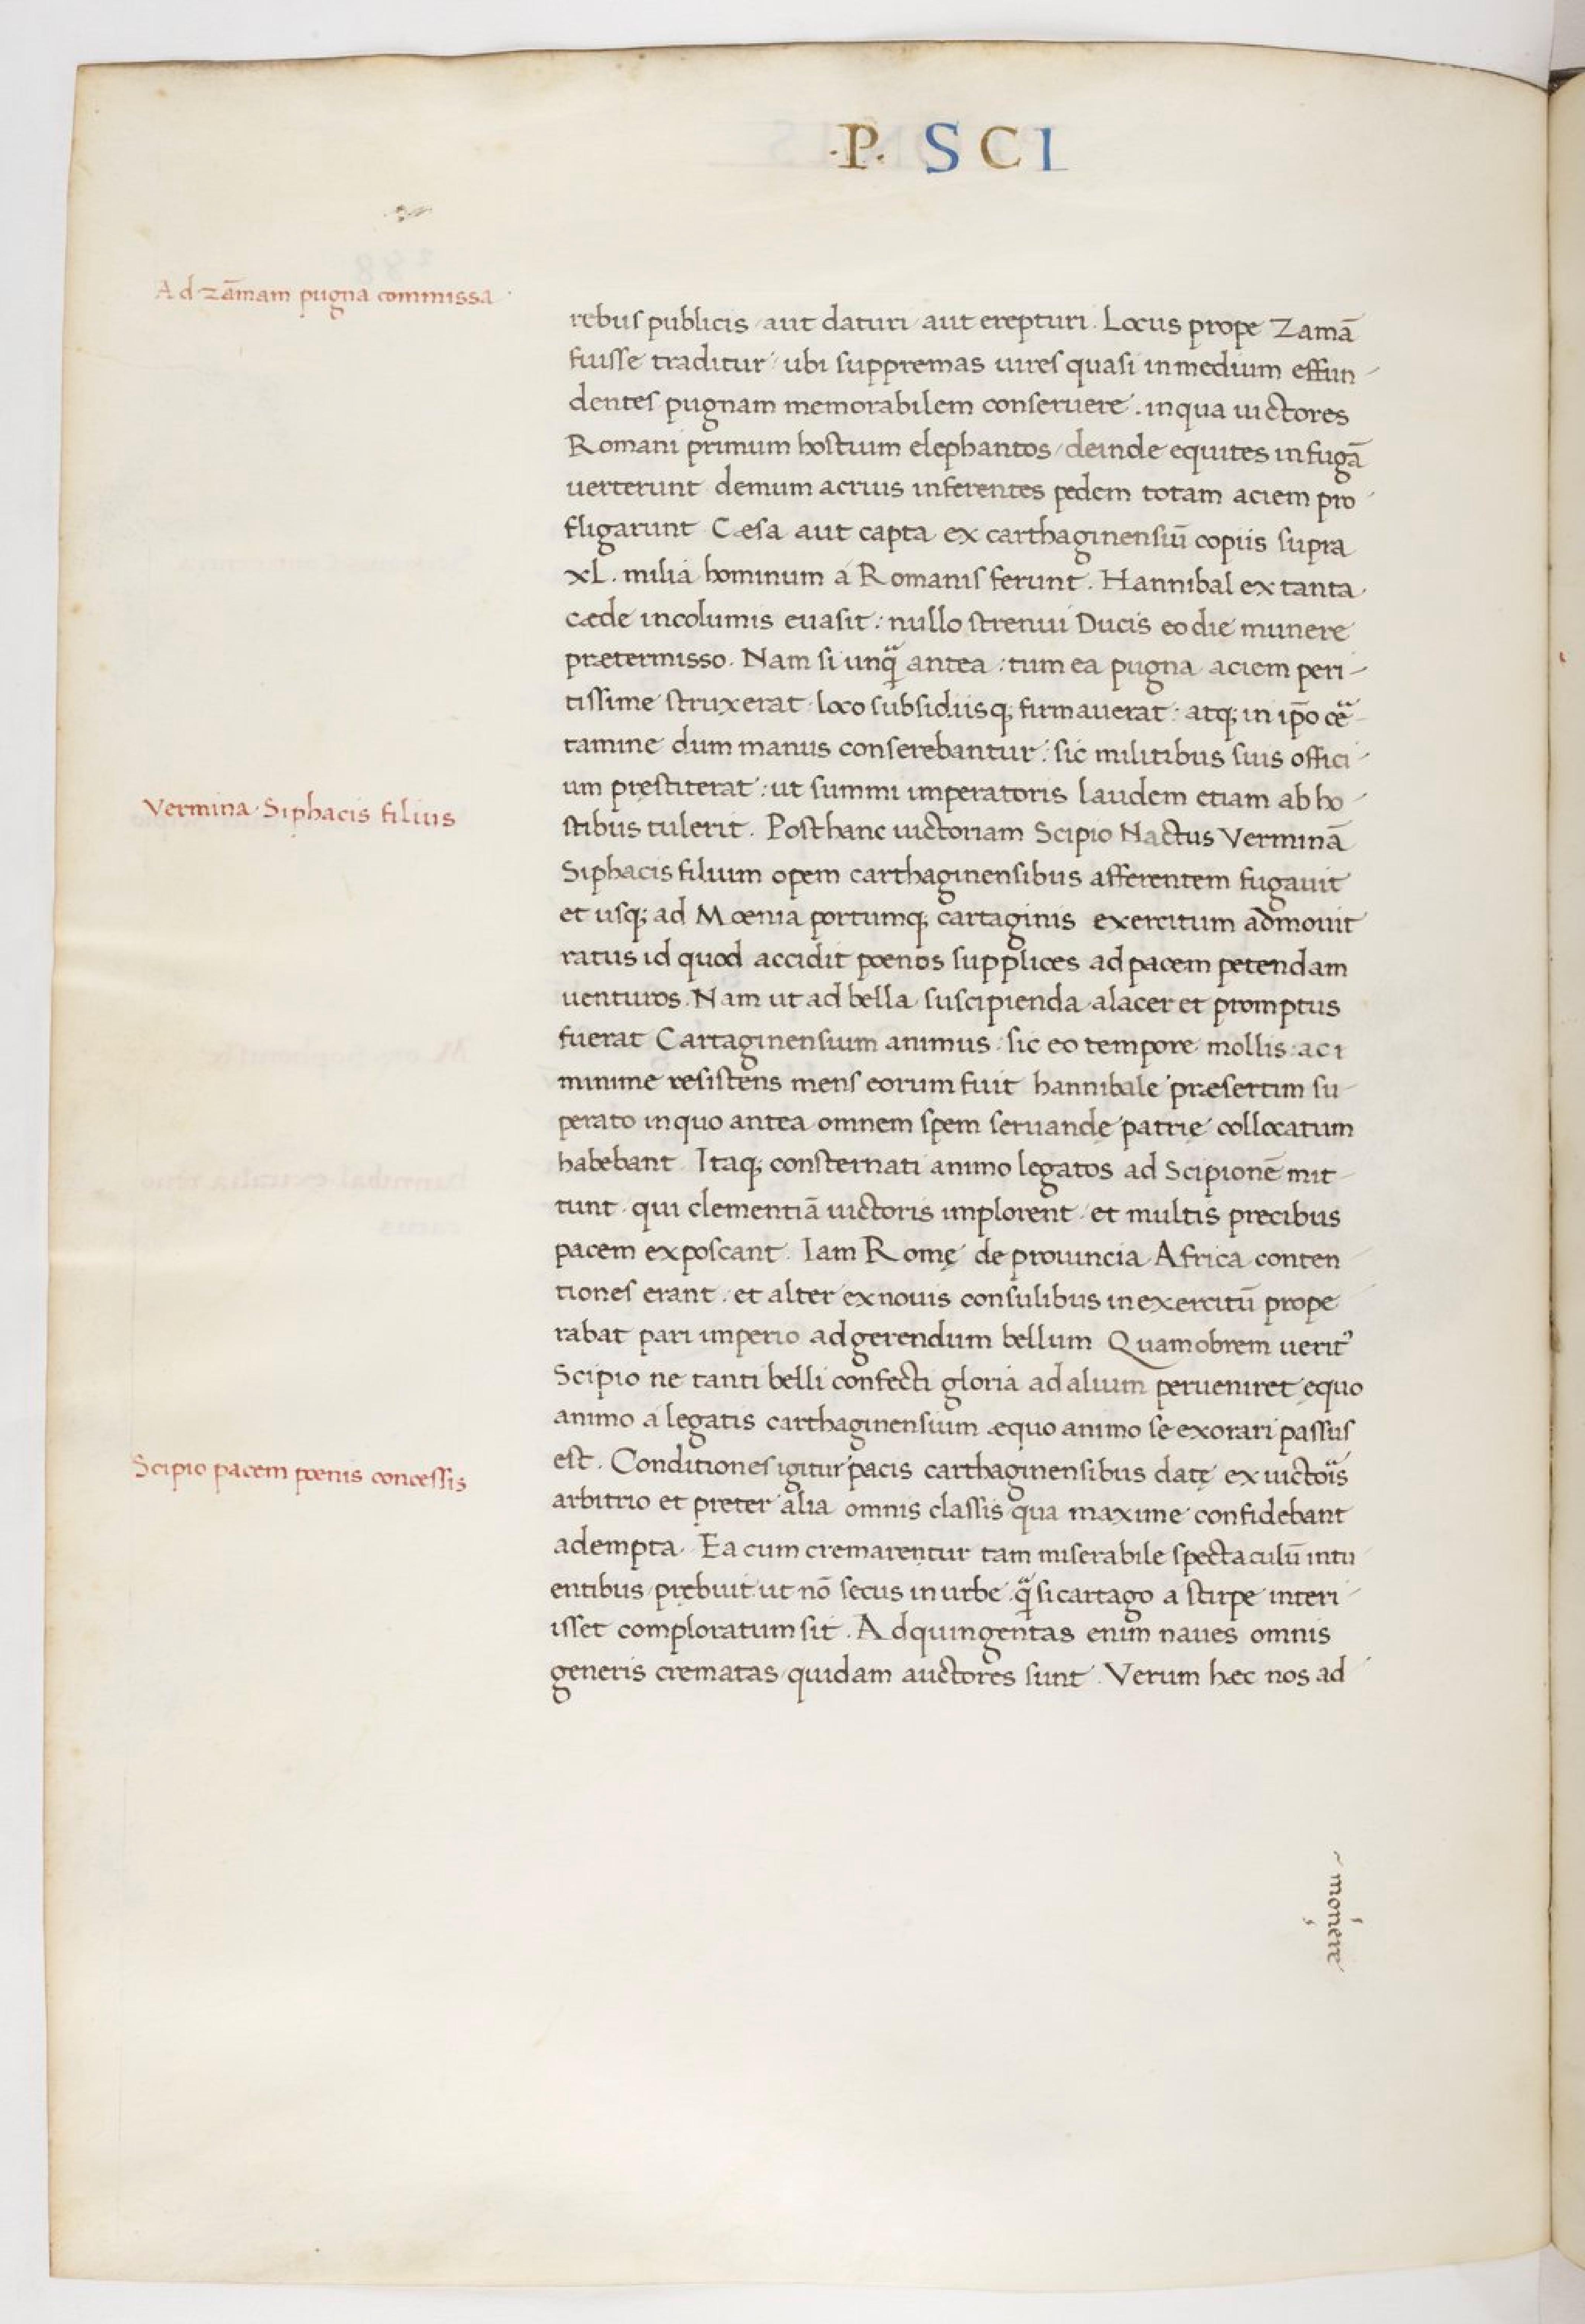 ·P· SCI
Ad zāmam pugna commissa
rebus publicis aut daturi aut erepturi. Locus prope Zamā
fuisse traditur ubi suppremas uires quasi in medium effun-
dentes pugnam memorabilem conseruere. in qua uictores
Romani primum hostium elephantos / deinde equites in fugā
uerterunt demum acrius inferentes pedem totam aciem pro
fligarunt Cæsa aut capta ex carthaginensiū copiis supra
XL. milia hominum a Romanis ferunt. Hannibal ex tanta
cæde incolumis euasit: nullo strenui Ducis eo die munere
prætermisso. Nam si unqᵃ antea: tum ea pugna aciem peri-
tissime struxerat loco subsidiisq; firmauerat: atq; in ip̄o ceᵃ-
tamine dum manus conserebantur: sic militibus suis offici-
um pręstiterat: ut summi imperatoris laudem etiam ab ho-
Vermina Siphacis filius
stibus tulerit. Post hanc uictoriam Scipio Nactus Verminā
Siphacis filium opem carthaginensibus afferentem fugauit
et usq; ad Mœnia portumq; cartaginis exercitum admouit
ratus id quod accidit pœnos supplices ad pacem petendam
uenturos. Nam ut ad bella suscipienda alacer et promptus
fuerat Cartaginensium animus: sic eo tempore mollis ac i
minime resistens mens eorum fuit hannibale præsertim su-
perato in quo antea omnem spem seruandę patrię collocatum
habebant. Itaq; consternati animo legatos ad Scipionē mit-
tunt qui clementiā uictoris implorent et multis precibus
pacem exposcant. Iam Romę de prouincia Africa conten
tiones erant. et alter ex nouis consulibus in exercitū prope
rabat pari imperio ad gerendum bellum Quamobrem uerit᾽
Scipio ne tanti belli confecti gloria ad alium perueniret ęquo
animo a legatis carthaginensium æquo animo se exorari passus
Scipio pacem pœnis concessis
est. Conditiones igitur pacis carthaginensibus datę ex uictoīs
arbitrio et pręter alia omnis classis qua maxime confidebant
adempta. Ea cum cremarentur tam miserabile spectaculū intu
entibus prębuit ut nō secus in urbe qᵃ si cartago a stirpe interi-
isset comploratum sit. Ad quingentas enim naues omnis
generis crematas quidam auctores sunt. Verum hæc nos ad
monere